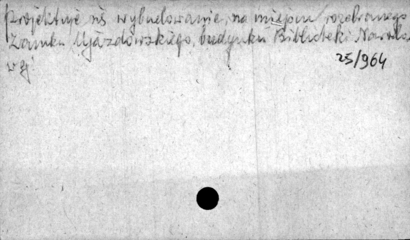 projektuje się wybudowanie, na miejscu rozebranego
Zamku Ujazdowskiego, budynku Biblioteki Narodo
wej
25/964